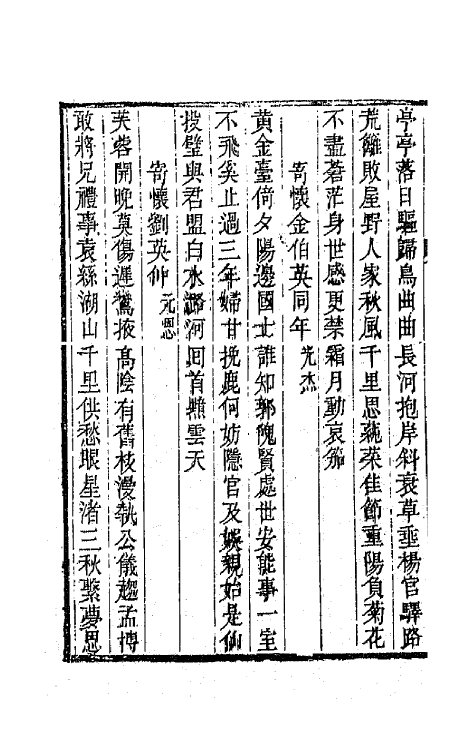 亭亭落日驅歸鳥曲曲長河抱岸斜衰草垂楊官驛路
荒籬敗屋野人家秋風千里思蒓菜佳節重陽負菊花
不盡蒼茫身世感更禁霜月動哀笳
寄懷金伯英同年光杰
黃金臺倚夕陽邊國士誰知郭隗賢處世安能事一室
不飛奚止過三年婦甘挽鹿何妨隱官及娛親始是仙
投璧與君盟白水潞河回首黯雲天
寄懷劉英仲元恩
芙蓉開晚莫傷遲鴛掖高陰有舊枝漫執公儀趨孟博
敢將兄禮事袁絲湖山千里供愁眼星渚三秋繫夢思